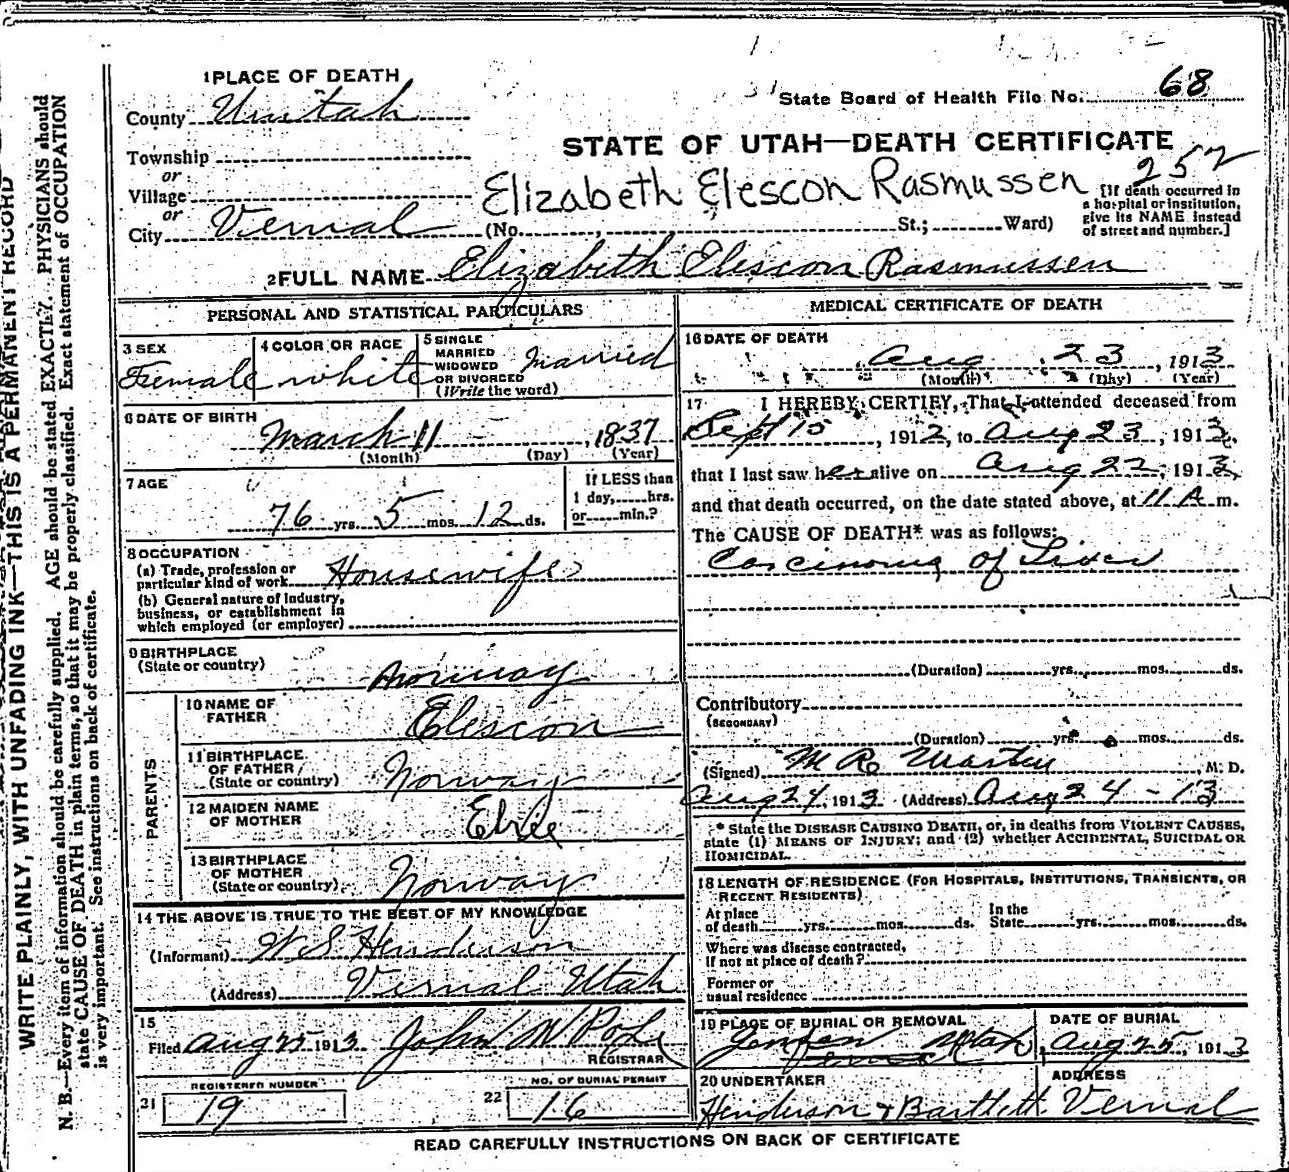 WRITE PLAINLY, WITH UNFADING INK—THIS IS A PERMANENT RECORD
N. B.—Every item of information should be carefully supplied. AGE should be stated EXACTLY. PHYSICIANS should
state CAUSE OF DEATH in plain terms, so that it may be properly classified. Exact statement of OCCUPATION
is very important. See instructions on back of certificate.
1 PLACE OF DEATH
County Uintah
Township
or
Village
or
City Vernal
State Board of Health File No. 68
STATE OF UTAH—DEATH CERTIFICATE
252
Elizabeth Elescon Rasmussen
(No. , St.; Ward)
[If death occurred in
a hospital or institution,
give its NAME instead
of street and number.]
2 FULL NAME Elizabeth Elescon Rasmussen
PERSONAL AND STATISTICAL PARTICULARS
3 SEX
Female
4 COLOR OR RACE
white
5 SINGLE
MARRIED
WIDOWED
OR DIVORCED
(Write the word)
Married
6 DATE OF BIRTH
March 11, 1837
(Month) (Day) (Year)
7 AGE
76 yrs. 5 mos. 12 ds.
If LESS than
1 day, hrs.
or min.?
8 OCCUPATION
(a) Trade, profession or
particular kind of work Housewife
(b) General nature of Industry,
business, or establishment in
which employed (or employer)
9 BIRTHPLACE
(State or country)
Norway
PARENTS
10 NAME OF
FATHER
Elescon
11 BIRTHPLACE
OF FATHER
(State or country)
Norway
12 MAIDEN NAME
OF MOTHER
13 BIRTHPLACE
OF MOTHER
(State or country)
Norway
14 THE ABOVE IS TRUE TO THE BEST OF MY KNOWLEDGE
(Informant) W S Henderson
(Address) Vernal Utah
15
Filed Aug 25 1913 John W Pope
REGISTRAR
REGISTERED NUMBER
21 19
NO. OF BURIAL PERMIT
22 16
MEDICAL CERTIFICATE OF DEATH
16 DATE OF DEATH
Aug 23, 1913
(Month) (Day) (Year)
17 I HEREBY CERTIFY, That I attended deceased from
Sept 15, 1912, to Aug 23, 1913,
that I last saw her alive on Aug 22, 1913,
and that death occurred, on the date stated above, at 11 A m.
The CAUSE OF DEATH* was as follows:
Carcinoma of Liver
(Duration) yrs. mos. ds.
Contributory
(SECONDARY)
(Duration) yrs. mos. ds.
(Signed) M R Martin, M. D.
Aug 24, 1913 (Address) Aug 24 - 13
* State the DISEASE CAUSING DEATH, or, in deaths from VIOLENT CAUSES,
state (1) MEANS OF INJURY; and (2) whether ACCIDENTAL, SUICIDAL OR
HOMICIDAL.
18 LENGTH OF RESIDENCE (FOR HOSPITALS, INSTITUTIONS, TRANSIENTS, OR
RECENT RESIDENTS)
At place
of death yrs. mos. ds.
In the
State yrs. mos. ds.
Where was disease contracted,
if not at place of death?
Former or
usual residence
19 PLACE OF BURIAL OR REMOVAL
Jensen Utah
DATE OF BURIAL
Aug 25, 1913
20 UNDERTAKER
Henderson & Bartlett
ADDRESS
Vernal
READ CAREFULLY INSTRUCTIONS ON BACK OF CERTIFICATE